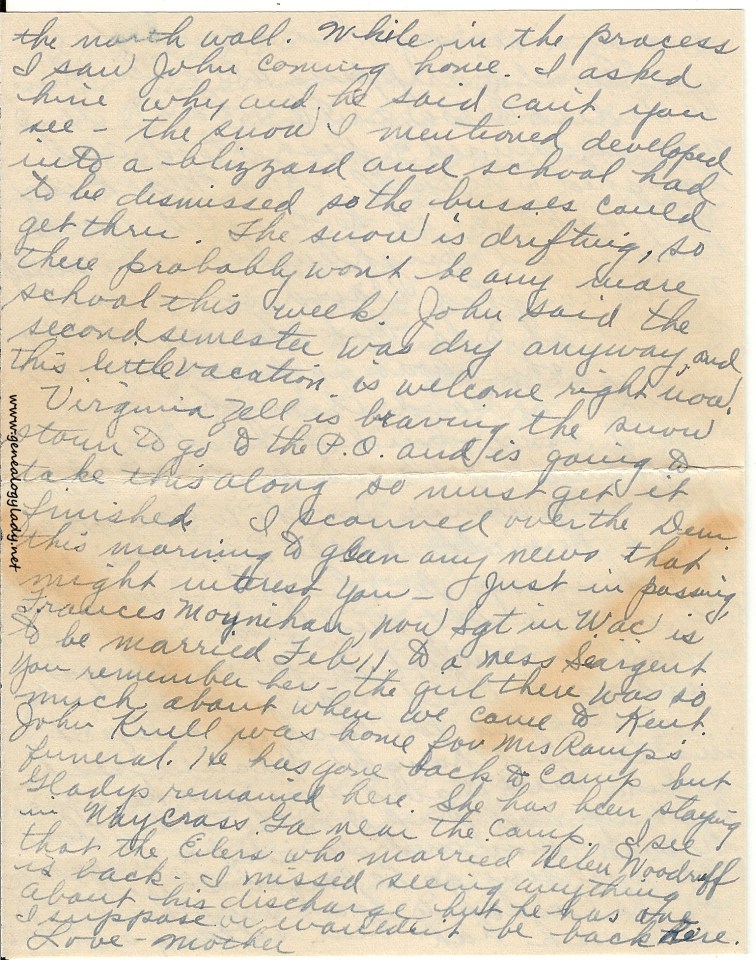 the north wall. While in the process
I saw John coming home. I asked
him why and he said can't you
see - the snow I mentioned developed
into a blizzard and school had
to be dismissed so the busses could
get thru. The snow is drifting, so
there probably won't be any more
school this week. John said the
second semester was dry anyway, and
this little vacation is welcome right now.
Virginia Zell is braving the snow
storm to go to the P.O. and is going to
take this along so must get it
finished. I scanned over the Dem
this morning to glean any news that
might interest you - Just in passing,
Frances Moynihan, now Sgt in Wac is
to be married Feb 11 to a mess Seargent
You remember her - the girl there was so
much about when we came to Kent.
John Krull was home for Mrs Ramp's
funeral. He has gone back to camp but
Gladys remained here. She has been staying
in Waycross Ga near the camp. I see
that the Eilers who married Helen Woodruff
is back. I missed seeing anything
about his discharge but he has one
I suppose or wouldent be back here.
Love - Mother
www.genealogylady.net